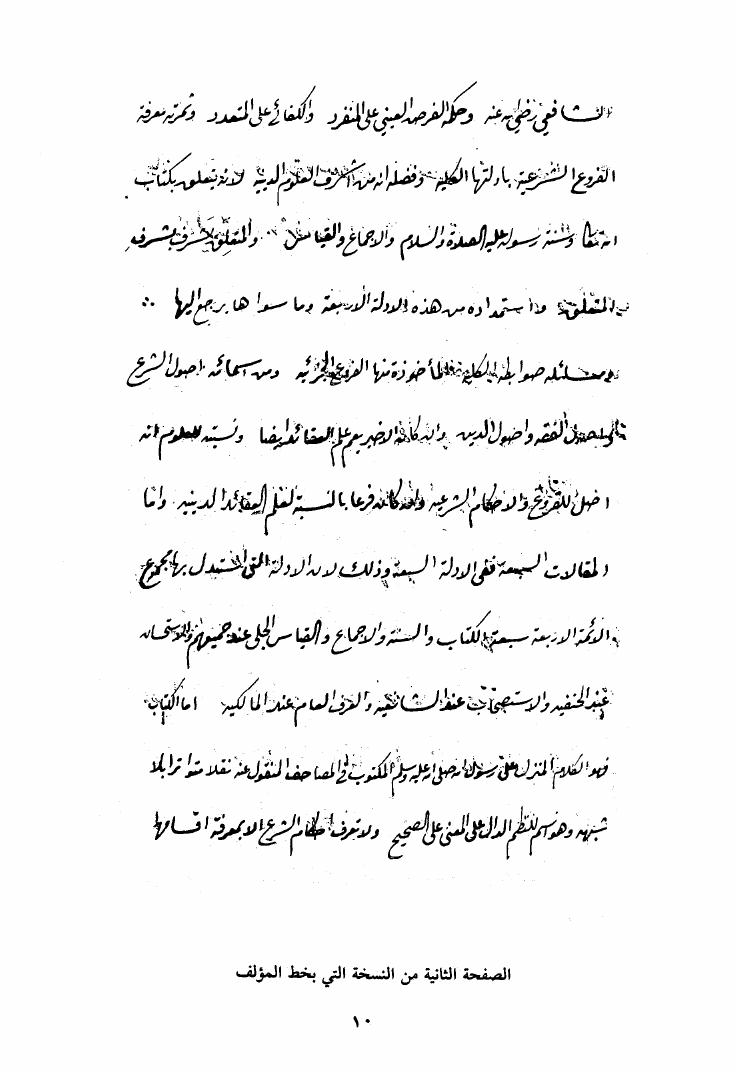 الشافعي رضي الله عنه وحكمه الفرض العيني على المنفرد والكفائي على المتعدد وثمرته معرفة
الفروع الشرعية بادلتها الكلية وفضله انه من اشرف العلوم الدينية لانه يتعلق بكتاب
الله تعالى وسنة رسوله عليه الصلاة والسلام والاجماع والقياس والمتعلق يشرف بشرف
المتعلق به واستمداده من هذه الادلة الاربعة وما سواها يرجع اليها
ومسائله ضوابطه الكلية المأخوذة منها الفروع الجزئية ومن اسمائه اصول الشرع
واصول الفقه واصول الدين وان كان الاخير يعم علم العقائد ايضا ونسبته للعلوم انه
اصل للفروع والاحكام الشرعية وان كان فرعا بالنسبة لعلم العقائد الدينية واما
المقالات السبعة ففي الادلة السبعة وذلك لان الادلة التي استدل بها مجموع
الائمة الاربعة سبعة الكتاب والسنة والاجماع والقياس الجلي عند جميعهم والاستحسان
عند الحنفيه والاستصحاب عند الشافعيه والعرف العام عند المالكية اما الكتاب
فهو الكلام المنزل على رسول الله صلى الله عليه وسلم المكتوب في المصاحف المنقول عنه نقلا متواترا بلا
شبهه وهو اسم للنظم الدال على المعنى على الصحيح ولا تعرف احكام الشرع الا بمعرفة اقسامها
الصفحة الثانية من النسخة التي بخط المؤلف
١٠